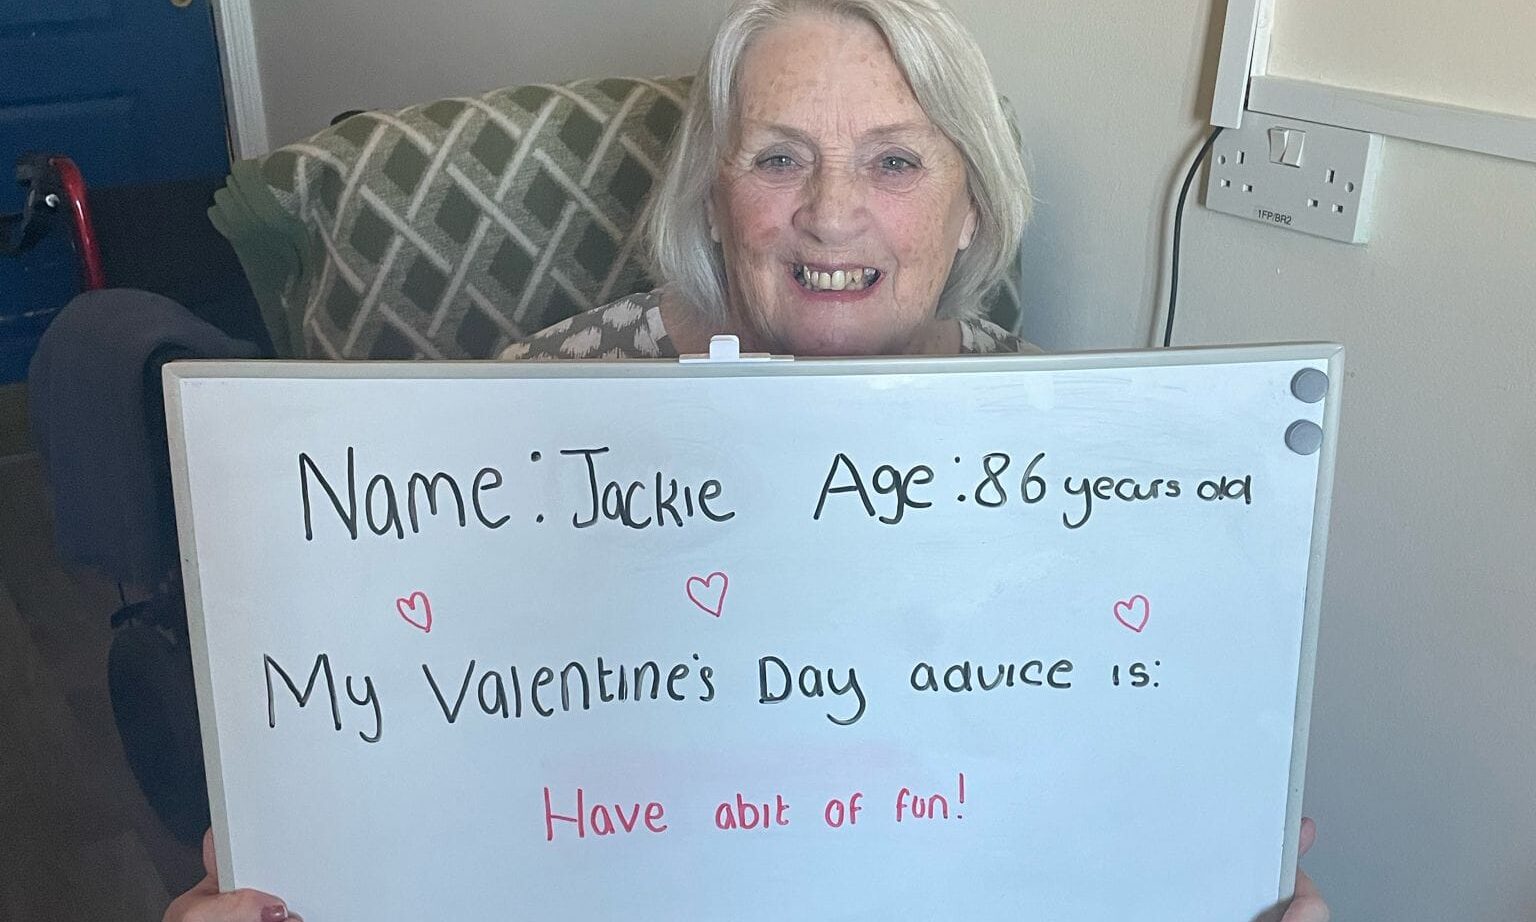 1FP/BR2
Name: Jackie Age: 86 years old
My Valentine's Day advice is:
Have abit of fun!